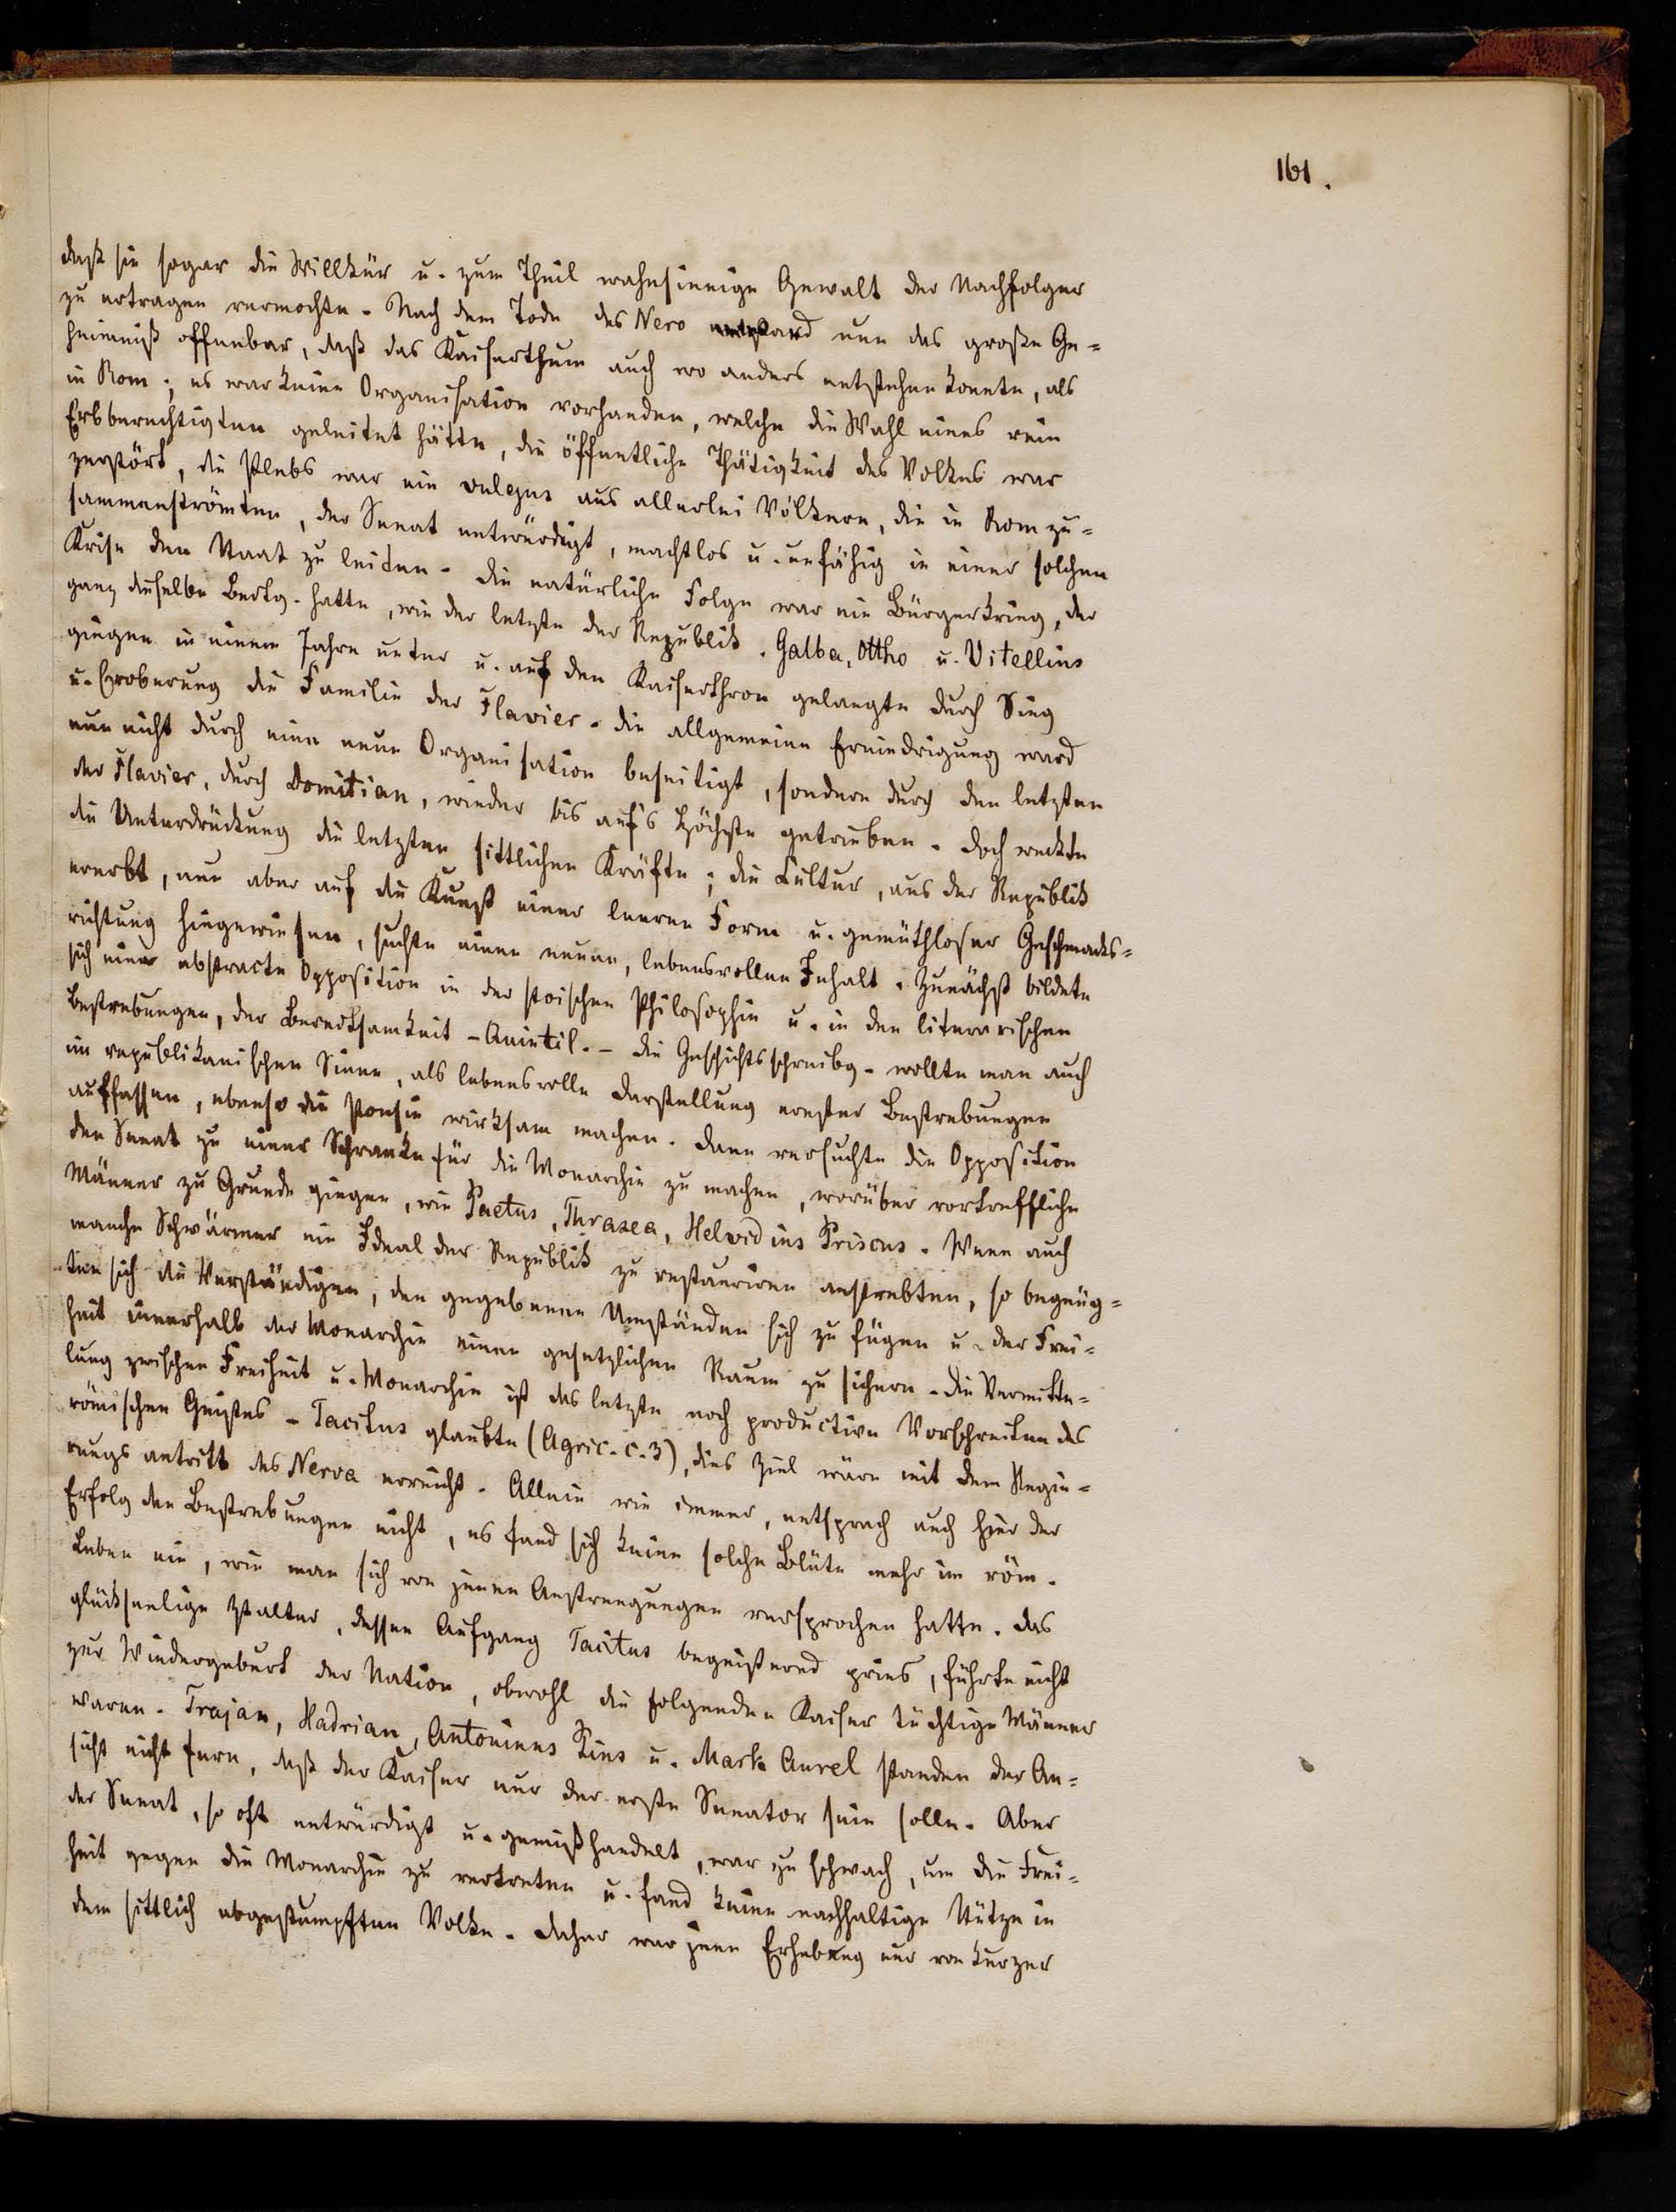 161.
daß sie sogar die Willkür u. zum Theil wahnsinnige Gewalt der Nachfolger
zu ertragen vermochte. Nach dem Tode des Nero ward nun das große Ge=
heimniß offenbar, daß das Kaiserthum auch wo anders entstehen konnte, als
in Rom; es war keine Organisation vorhanden, welche die Wahl eines rein
Erbberechtigten geleitet hätte, die öffentliche Thätigkeit des Volkes war
zerstört, die Plebs war ein vulgus aus allerlei Völkern, die in Rom zu=
sammenströmten, der Senat entwürdigt, machtlos u. unfähig in einer solchen
Krise den Staat zu leiten. Die natürliche Folge war ein Bürgerkrieg, der
ganz dieselbe Bedtg. hatte, wie der letzte der Republik. Galba, Ottho u. Vitellius
giengen in einem Jahre unter u. auf den Kaiserthron gelangte durch Sieg
u. Eroberung die Familie der Flavier. Die allgemeine Erniedrigung ward
nun nicht durch eine neue Organisation beseitigt, sondern durch den letzten
der Flavier, durch Domitian, wieder bis auf's Höchste getrieben. Doch weckte
die Unterdrückung die letzten sittlichen Kräfte; die Cultur, aus der Republik
ererbt, nun aber auf die Kunst einer leeren Form u. gemüthloser Geschmacks=
richtung hingewiesen, suchte einen neuen, lebensvollen Inhalt. Zunächst bildete
sich eine abstracte Opposition in der stoischen Philosophie u. in den literarischen
Bestrebungen, der Beredtsamkeit - Quintil. - die Geschichtsschreibg. wollte man auch
im republikanischen Sinne, als lebensvolle Darstellung ernster Bestrebungen
auffassen, ebenso die Poesie wirksam machen. Dann versuchte die Opposition
den Senat zu einer Schranke für die Monarchie zu machen, worüber vortreffliche
Männer zu Grunde giengen, wie Paetus, Thrasea, Helvidius Priscus. Wenn auch
manche Schwärmer ein Ideal der Republik zu restauriren anstrebten, so begnüg=
ten sich die Verständigen, den gegebenen Umständen sich zu fügen u. der Frei=
heit innerhalb der Monarchie einen gesetzlichen Raum zu sichern. Die Vermitte=
lung zwischen Freiheit u. Monarchie ist das letzte noch productive Vorschreiten des
römischen Geistes - Tacitus glaubte (Agric. c. 3), dies Ziel wäre mit dem Regie=
rungsantritt des Nerva erreicht. Allein wie immer, entsprach auch hier der
Erfolg den Bestrebungen nicht, es fand sich keine solche Blüte mehr im röm.
Leben ein, wie man sich von jenen Anstrengungen versprochen hatte. Das
glückseelige Ztalter, dessen Aufgang Tacitus begeisternd pries, führte nicht
zur Wiedergeburt der Nation, obwohl die folgenden Kaiser tüchtige Männer
waren. Trajan, Hadrian, Antoninus Pius u. Mark Aurel standen der An=
sicht nicht fern, daß der Kaiser nur der erste Senator sein solle. Aber
der Senat, so oft entwürdigt u. gemißhandelt, war zu schwach, um die Frei=
heit gegen die Monarchie zu vertreten u. fand keine nachhaltige Stütze in
dem sittlich abgestumpften Volke. Daher war jene Erhebung nur von kurzer